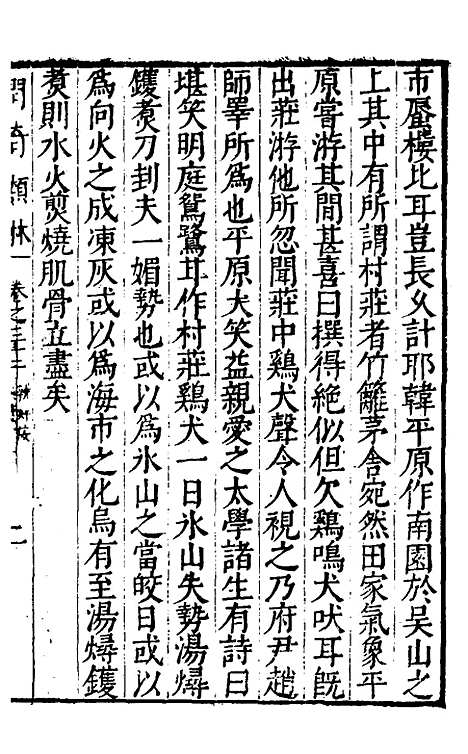 市蜃樓比耳豈長久計耶韓平原作南園於吳山之
上其中有所謂村莊者竹籬茅舍宛然田家氣象平
原嘗游其間甚喜曰撰得絕似但欠鷄鳴犬吠耳旣
出莊游他所忽聞莊中鷄犬聲令人視之乃府尹趙
師睪所爲也平原大笑益親愛之太學諸生有詩曰
堪笑明庭鴛鷺甘作村莊鷄犬一日氷山失勢湯燖
鑊煑刀刲夫一媚勢也或以爲氷山之當皎日或以
爲向火之成凍灰或以爲海市之化烏有至湯燖鑊
煑則水火煎燒肌骨立盡矣
問奇類林
卷之三十
二